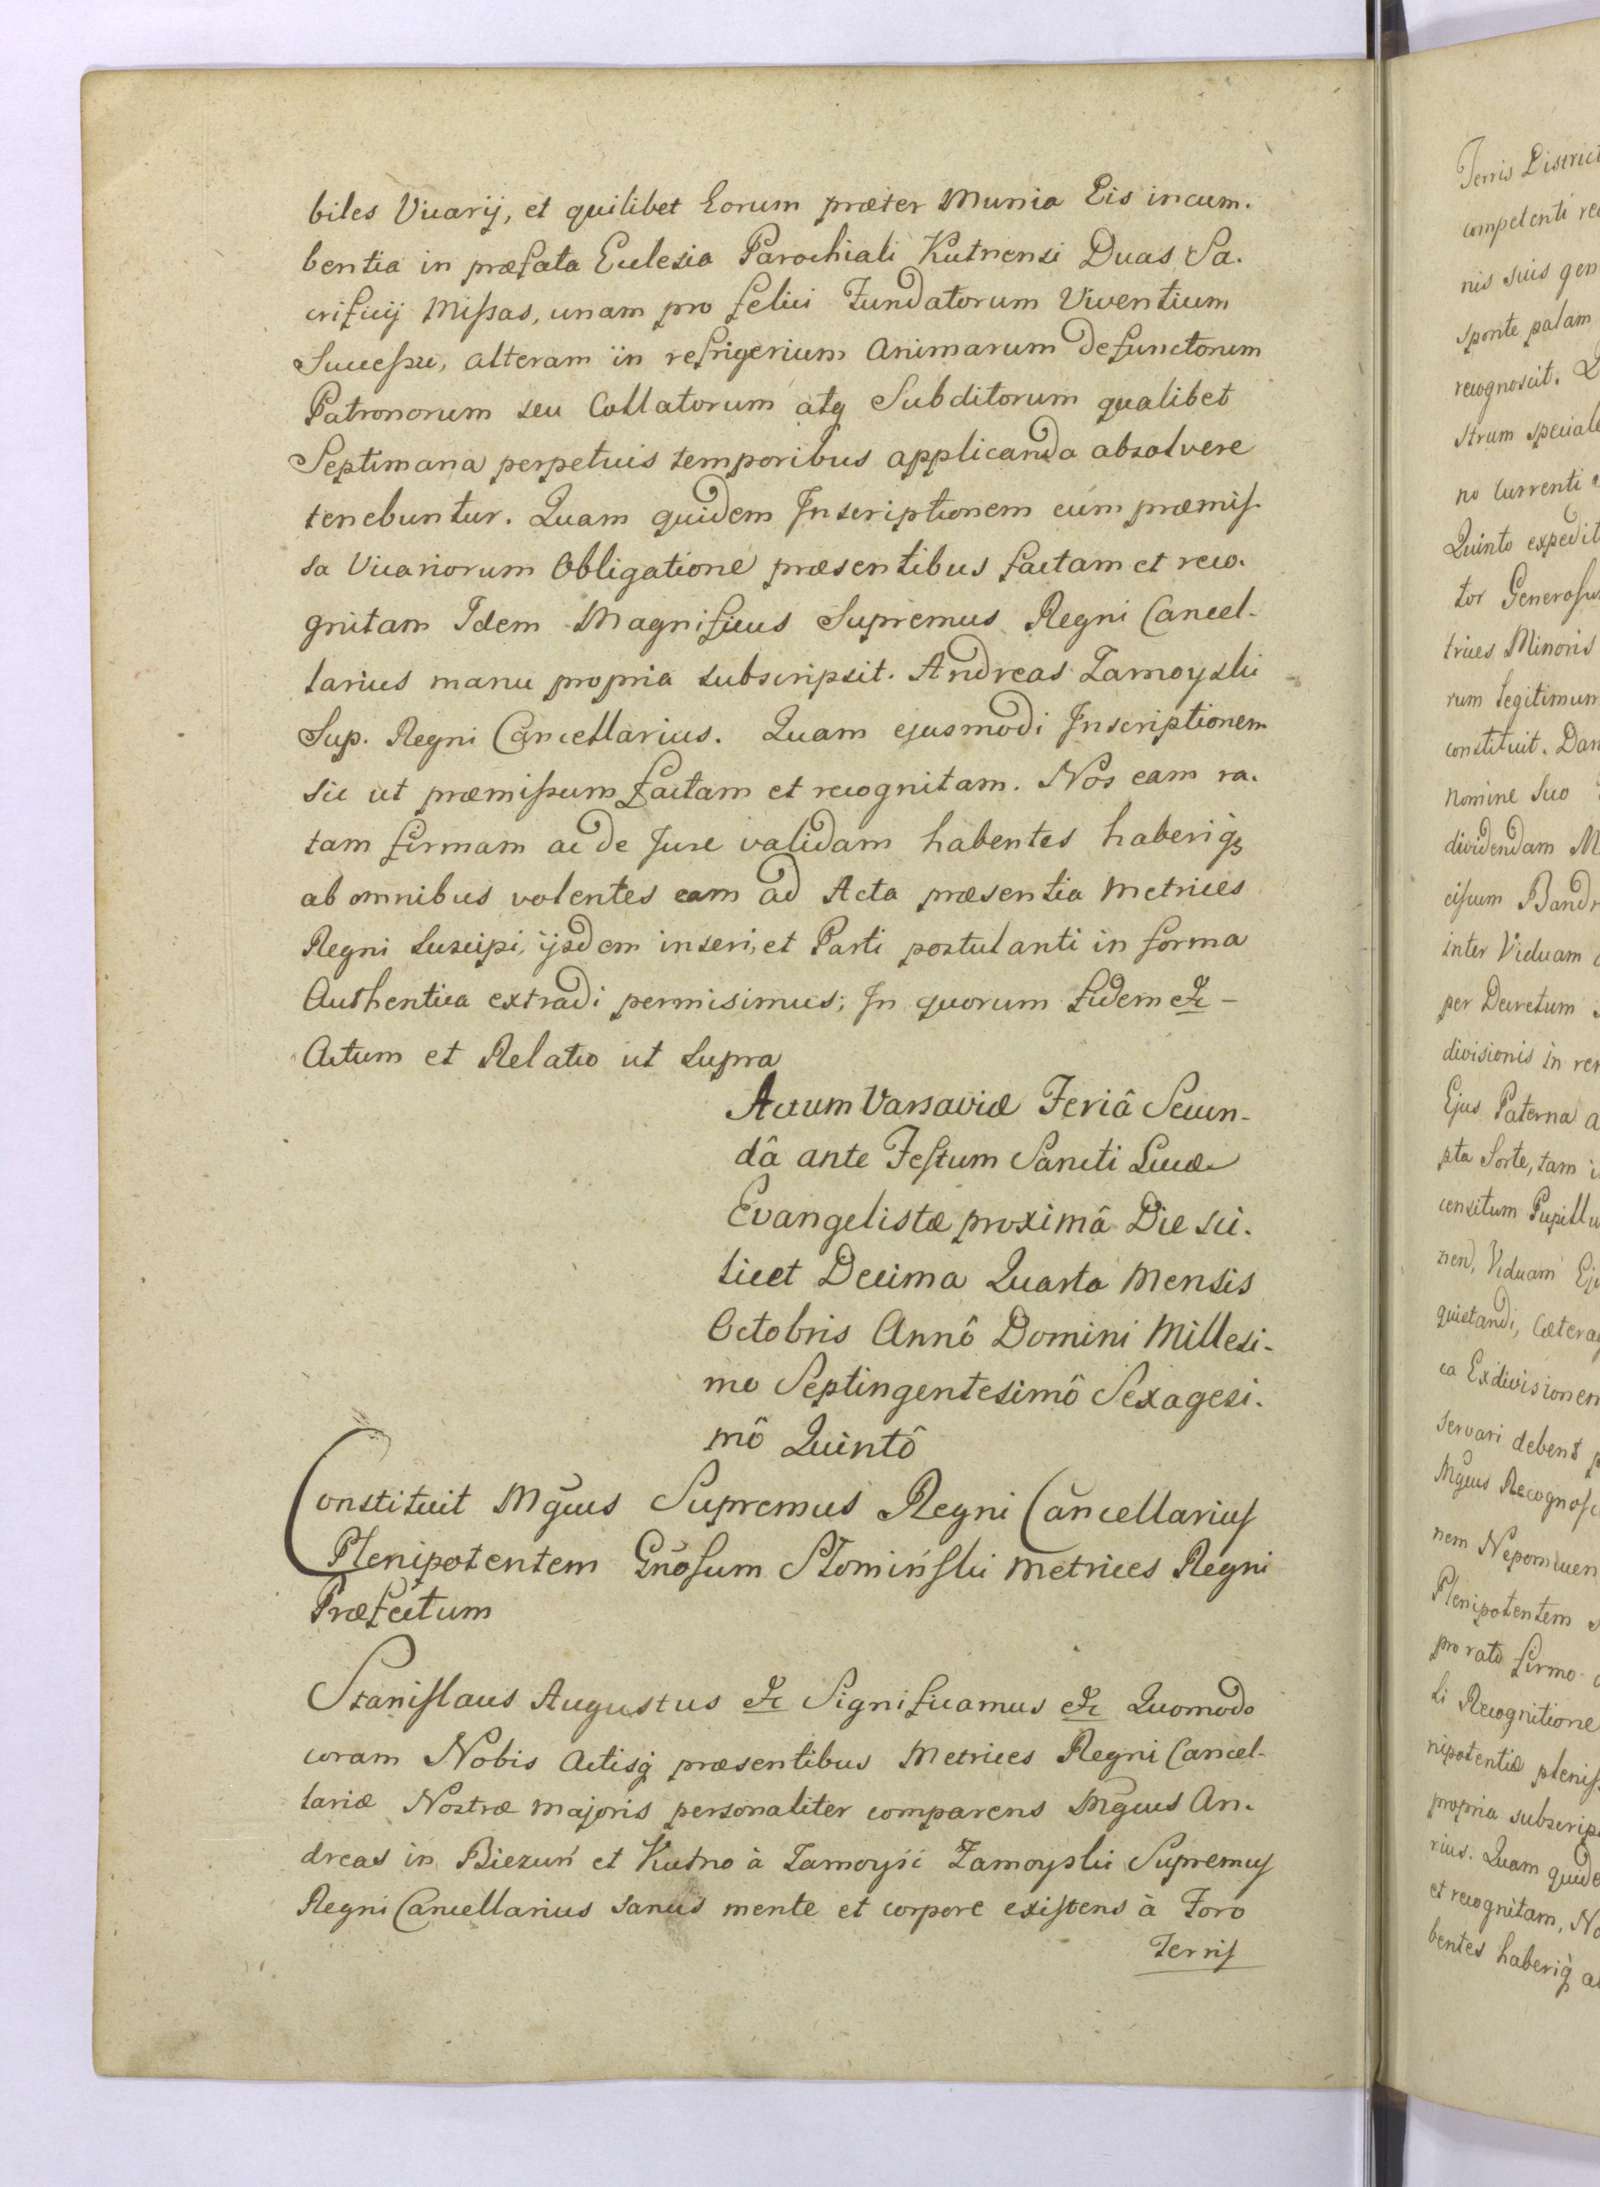 biles Vicarij, et quilibet Eorum præter Munia Eis incum.
bentia in præfata Ecclesia Parochiali Kutnensi Duas Sa.
crificij Missas, unam pro felici Fundatorum Viventium
Successu, alteram in refrigerium Animarum defunctorum
Patronorum seu Collatorum atq Subditorum qualibet
Septimana perpetuis temporibus applicanda absolvere
tenebuntur. Quam quidem Inscriptionem cum præmis-
sa Vicariorum Obligatione præsentibus factam et reco.
gnitam Idem Magnificus Supremus Regni Cancel-
larius manu propria subscripsit. Andreas Zamoyski
Sup. Regni Cancellarius. Quam ejusmodi Inscriptionem
sic ut præmissum factam et recognitam. Nos eam ra.
tam firmam ac de Jure validam habentes haberiq3
ab omnibus volentes eam ad Acta præsentia Metrices
Regni Suscipi, ijsdem inseri, et Parti postulanti in forma
Authentica extradi permisimus; In quorum fidem &c –
Actum et Relatio ut supra
Actum Varsaviæ Feriâ Secun-
dâ ante Festum Sancti Lucæ
Evangelistæ proximâ Die sci.
licet Decima Quarta Mensis
Octobris Annô Domini Millesi-
mo Septingentesimô Sexagesi.
mô Quintô
Constituit Mgcus Supremus Regni Cancellarius
Plenipotentem Gnosum Słomiński Metrices Regni
Præfectum
Stanislaus Augustus &c Significamus &c Quomodo
coram Nobis Actisq præsentibus Metrices Regni Cancel-
lariæ Nostræ majoris personaliter comparens Mgcus An.
dreas in Biezuń et Kutno à Zamoyść Zamoyski Supremus
Regni Cancellarius sanus mente et corpore existens à Foro
Terris
Terris District
competenti re
nis suis gen
sponte palam
recognoscit.
strum speciale
no currenti
Quinto expedit
tor Generosu
trices Minoris
rum legitimum
constituit. Dan
nomine suo
dividendam M
ciscum Bandr
inter Viduam
per Decretum
divisionis in re
Ejus Paterna a
pta Sorte, tam i
censitum Pupillu
nend, Viduam Ej
quietandi, Cætera
ca Exdivisionem
servari debent p
Mgcus Recognosc
nem Nepomucen
Plenipotentem
pro rato firmo
li Recognitione
nipotentiæ pleniss
propria subscrips
rius. Quam quide
et recognitam, No
bentes haberiq a